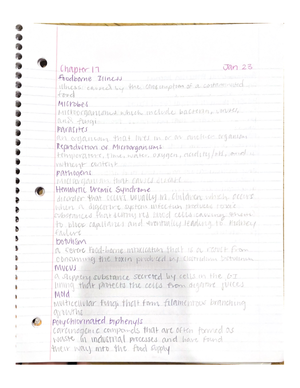 Chapter 17 Jan 23
Foodborne Illness
illness caused by the consumption of a contaminated
food
Microbes
Microorganisms which include bacteria, viruses
and fungi
Parasites
an organism that lives in or on another organism
Reproduction of Microorganisms
temperature, time, water, oxygen, acidity/pH, and
nutrient content
Pathogens
microorganism that causes disease
Hemolytic Uremic Syndrome
disorder that occurs usually in children which
when a digestive system infection produces toxic
substances that destroy red blood cells causing
to block capillaries and eventually leading to kidney
failure
Botulism
a severe food-borne intoxication that is a result from
consuming the toxin produced by Clostridium botulinum
Mucus
a slippery substance secreted by cells in the GI
lining that protects the cells from digestive juices
Mold
multicellular fungi that form filamentous branching
growths
Polychlorinated biphenyls
carcinogenic compounds that are often formed as
waste in industrial processes and have found
their way into the food supply